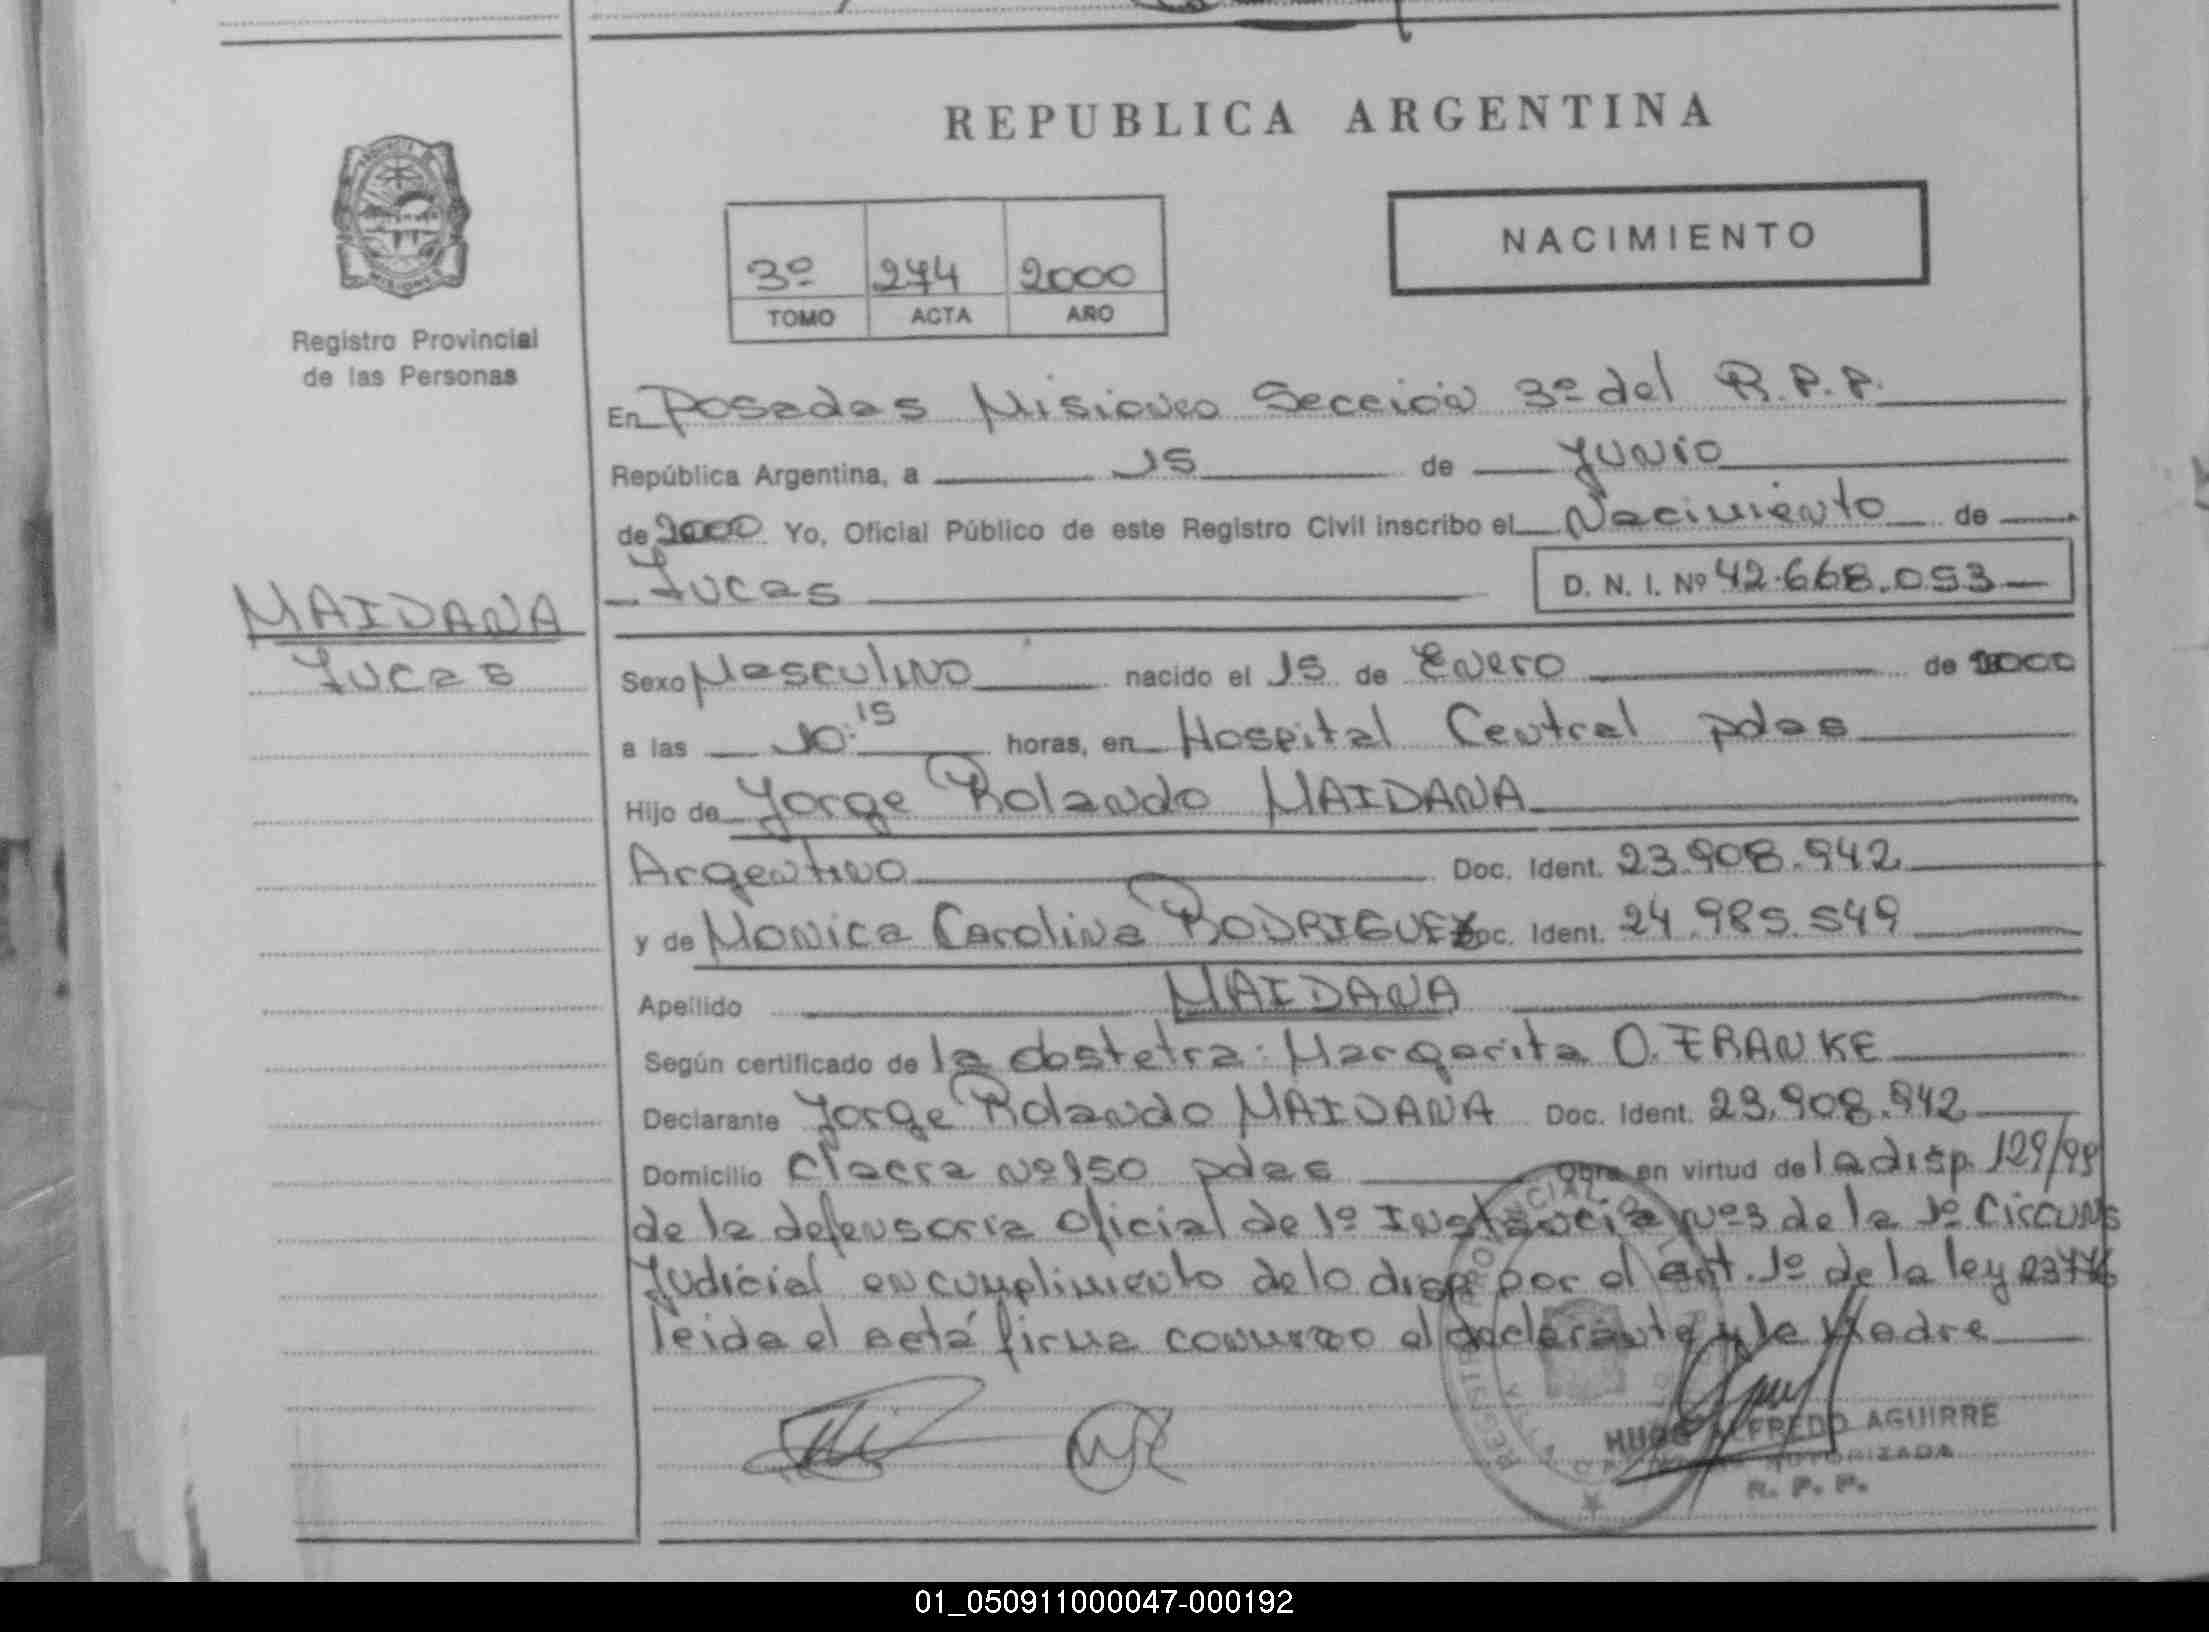 REPUBLICA ARGENTINA
NACIMIENTO
3º 274 2000
TOMO ACTA AÑO
Registro Provincial
de las Personas
En Posadas Misiones Sección 3º del R.P.P.
República Argentina, a 15 de Junio
de 2000 Yo, Oficial Público de este Registro Civil inscribo el Nacimiento de
Lucas D. N. I. Nº 42.668.053
MAIDANA
Lucas
Sexo Masculino nacido el 15 de Enero de 2000
a las 10:15 horas, en Hospital Central pdas
Hijo de Jorge Rolando MAIDANA
Argentino Doc. Ident. 23.908.942
y de Monica Carolina RODRIGUEZ Doc. Ident. 24.985.549
Apellido MAIDANA
Según certificado de la obstetra: Margarita O. FRANKE
Declarante Jorge Rolando MAIDANA Doc. Ident. 23.908.942
Domicilio Chacra Nº 150 pdas Obra en virtud de la disp. 129/99
de la defensoria oficial de 1º Instancia Nº3 de la 1º Circuns
Judicial en cumplimiento de lo disp por el art. 1º de la ley 23776
leida el acta firma conmigo el declarante y la Madre
HUGO ALFREDO AGUIRRE
AUTORIZADA
R. P. P.
01_050911000047-000192